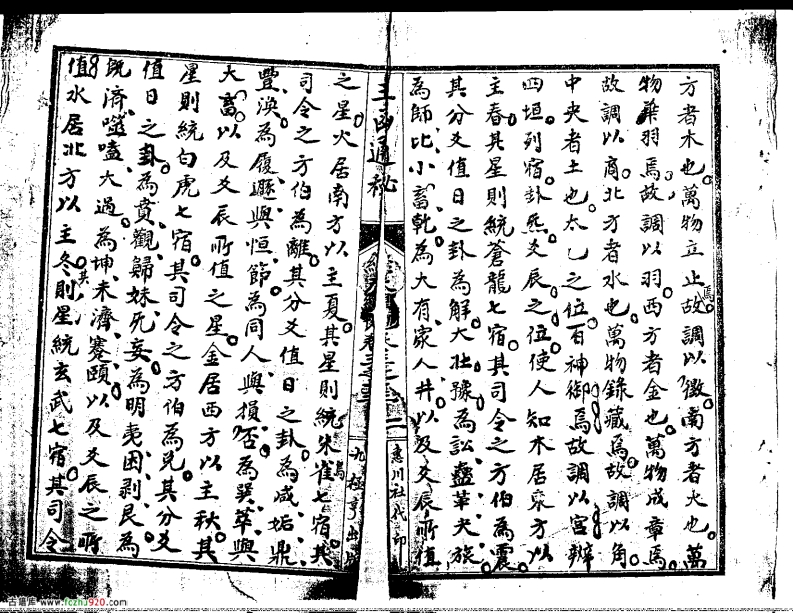 方者木也萬物立止焉故調以徵南方者火也萬
物華羽焉故調以羽西方者金也萬物成章焉
故調以商北方者水也萬物錄藏焉故調以角
中央者土也太乙之位百神御焉故調以宮辨
四垣列宿卦炁爻辰之位使人知木居東方以
主春其星則統蒼龍七宿其司令之方伯為震
其分爻值日之卦為解大壯豫為訟蠱革夬旅
為師比小畜乾為大有家人井以及爻辰所值
三函通秘
惠川社代印
之星火居南方以主夏其星則統朱雀七宿其
司令之方伯為離其分爻值日之卦為咸姤鼎
豐渙為履遯與恒節為同人與損否為巽萃與
大畜以及爻辰所值之星金居西方以主秋其
星則統白虎七宿其司令之方伯為兌其分爻
值日之卦為賁觀歸妹死妄為明夷困剥艮為
既濟噬嗑大過為坤未濟蹇頤以及爻辰之所
值水居北方以主冬其則星統玄武七宿其司令
古籍库-www.fczhj920.com